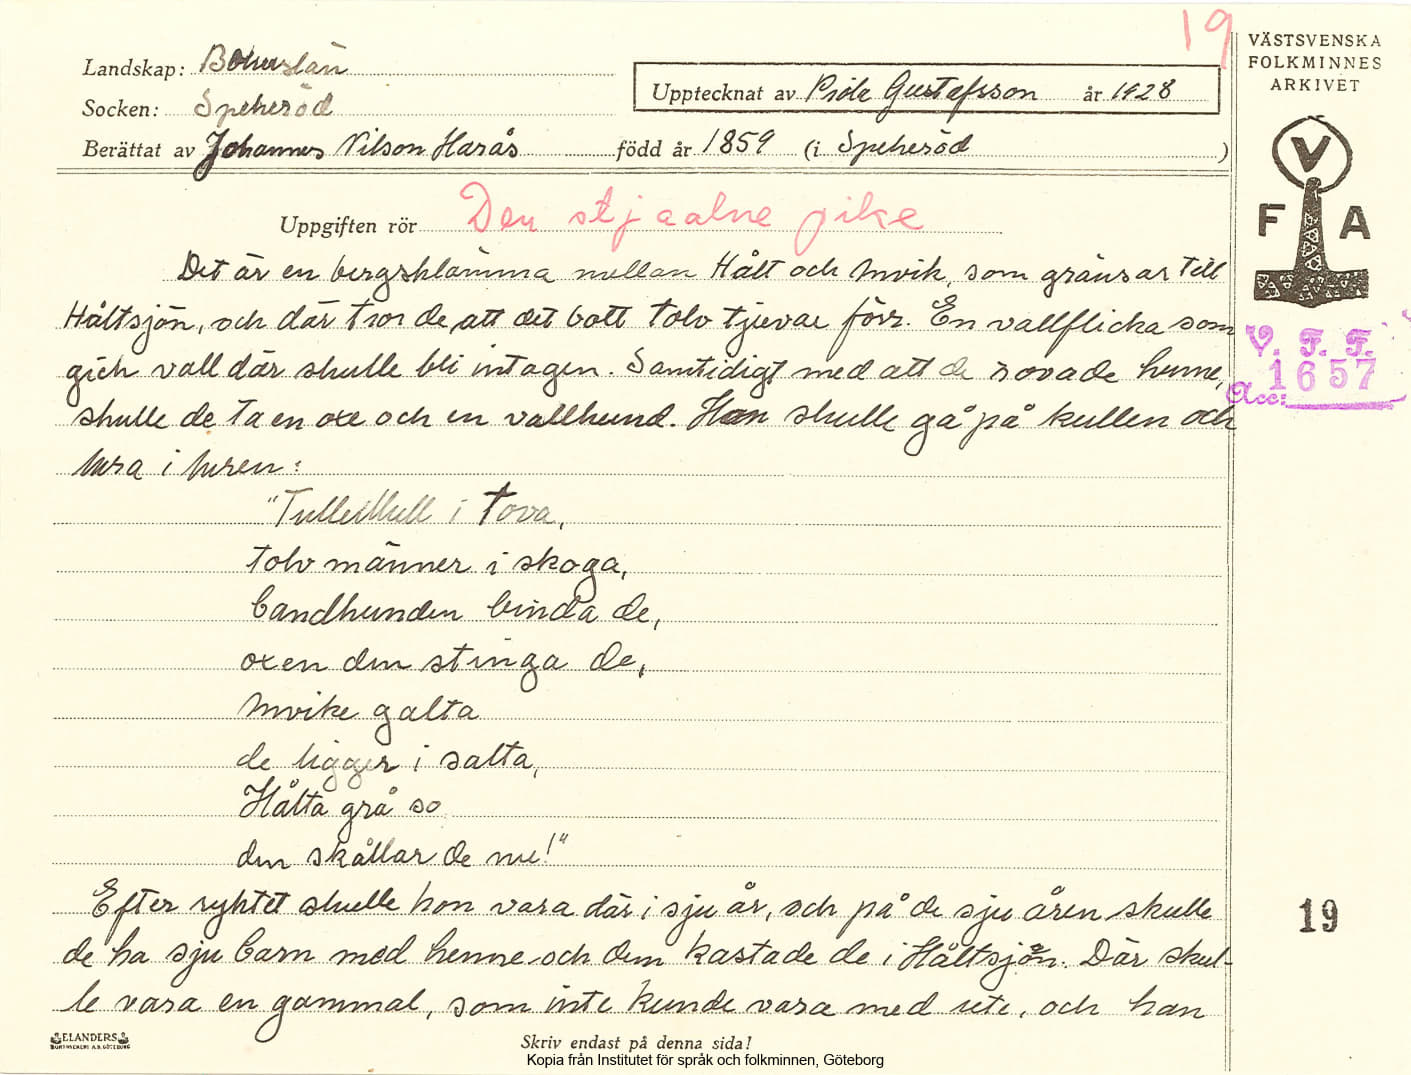 19
VÄSTSVENSKA
FOLKMINNES
ARKIVET
Landskap: Bohuslän
Socken: Spekeröd
Upptecknat av Pide Gustafsson år 1928
Berättat av Johannes Nilson Harås född år 1859 (i Spekeröd )
V
F A
Uppgiften rör Den stjaalne pike
Det är en bergsklämma mellan Hålt och Invik, som gränsar till
Håltsjön, och där tror de, att det bott tolv tjuvar förr. En vallflicka som
gick vall där skulle bli intagen. Samtidigt med att de rövade henne,
skulle de ta en oxe och en vallhund. Hon skulle gå på kullen och
lura i luren:
"Tulleillull i tova,
tolv männer i skoga,
bandhunden binda de,
oxen den stinga de,
Invike galta
de ligger i salta,
Hålta grå so
den skållar de nu!"
Efter ryktet skulle hon vara där i sju år, och på de sju åren skulle
de ha sju barn med henne och dem kastade de i Håltsjön. Där skul-
le vara en gammal, som inte kunde vara med ute, och han
V. F. F.
1657
Acc:
19
ELANDERS
BOKTRYCKERI A.B. GÖTEBORG
Skriv endast på denna sida!
Kopia från Institutet för språk och folkminnen, Göteborg